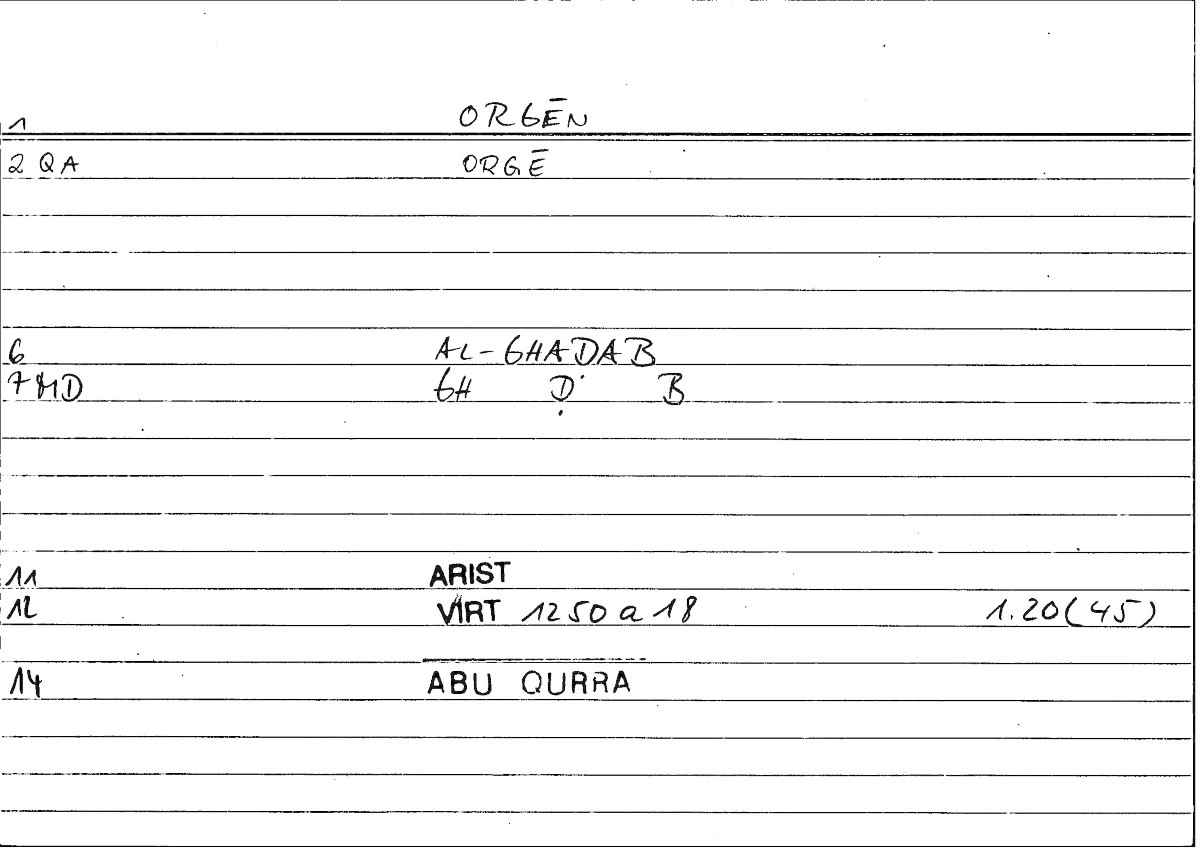 1 ORGĒN
2 QA ORGĒ
6 AL-GHADAB
7 MD GH Ḍ B
11 ARIST
12 VIRT 1250 a 18 1.20(45)
14 ABU QURRA